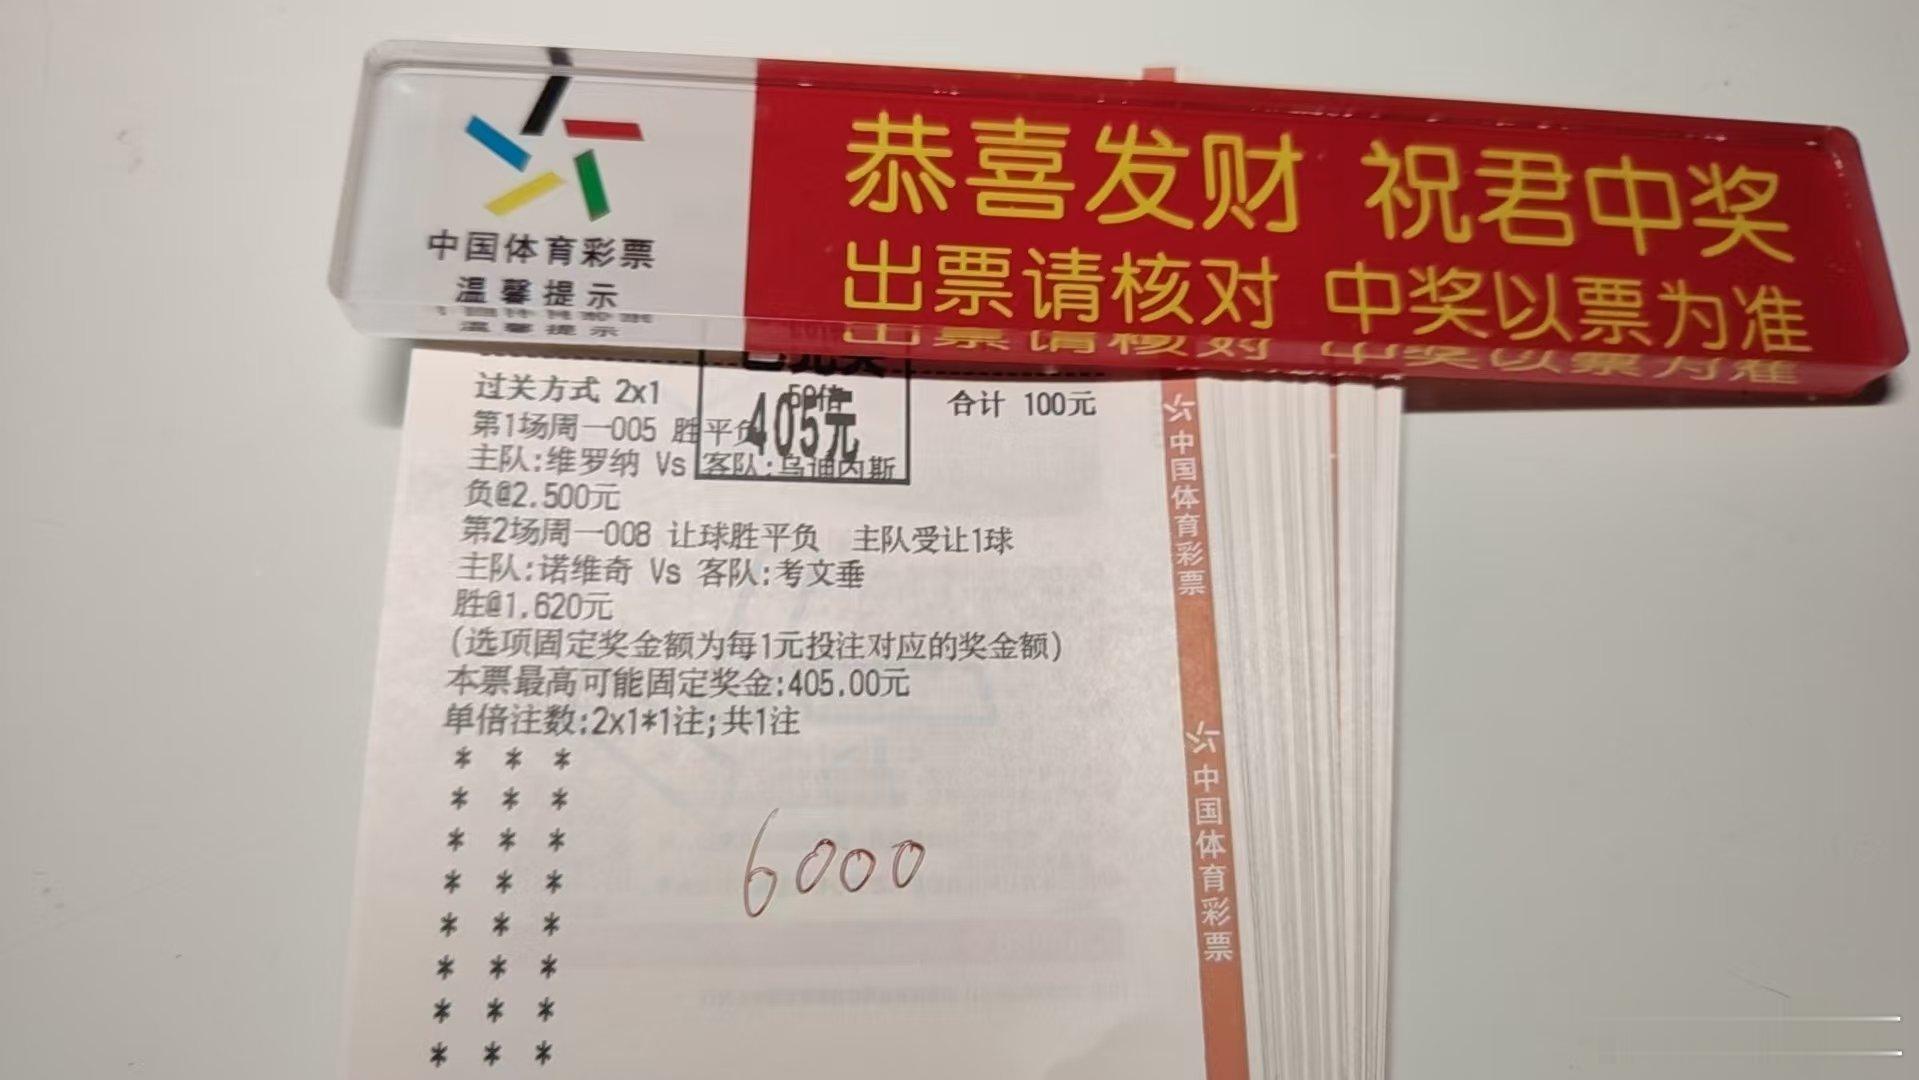 中国体育彩票
温馨提示
恭喜发财 祝君中奖
出票请核对 中奖以票为准
过关方式 2x1 50倍 合计 100元
405元
第1场周一005 胜平负
主队:维罗纳 Vs 客队:乌迪内斯
负@2.500元
第2场周一008 让球胜平负 主队受让1球
主队:诺维奇 Vs 客队:考文垂
胜@1.620元
(选项固定奖金额为每1元投注对应的奖金额)
本票最高可能固定奖金:405.00元
单倍注数:2x1*1注;共1注
* * *
* * *
* * *
* * *
* * *
* * *
* * *
* * *
6000
中国体育彩票
中国体育彩票